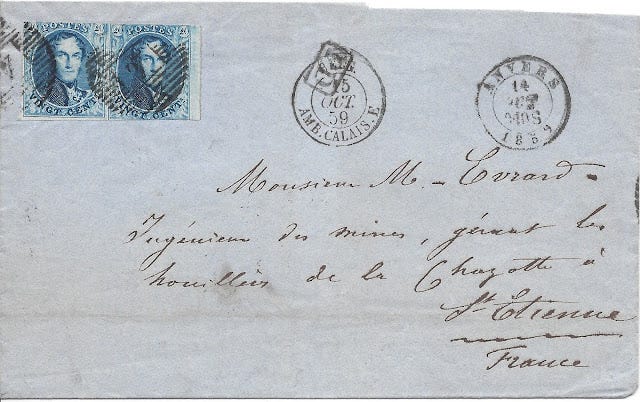 POSTES POSTES
VINGT CENT. VINGT CENT.
15
OCT.
59
AMB. CALAIS. E
ANVERS
14
OCT
1859
Monsieur M - Evrard -
Ingénieur des mines, gérant les
houilles de la Chazotte à
St Etienne
France